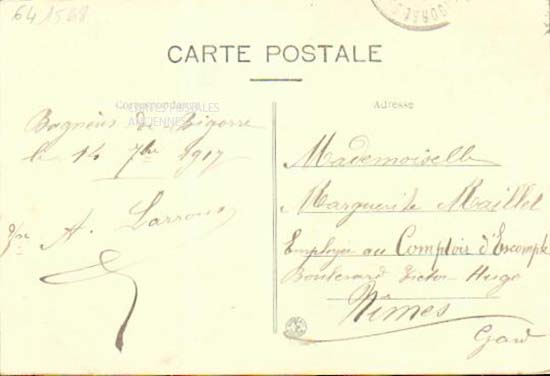 64 1568
CARTE POSTALE
Correspondance
CARTES POSTALES
ANCIENNES
Bagnères de Bigorre
le 14 7bre 1917
A. Larrous
Adresse
Mademoiselle
Marguerite Maillet
Employée au Comptoir d'Escompte
Boulevard Victor Hugo
Nîmes
Gard